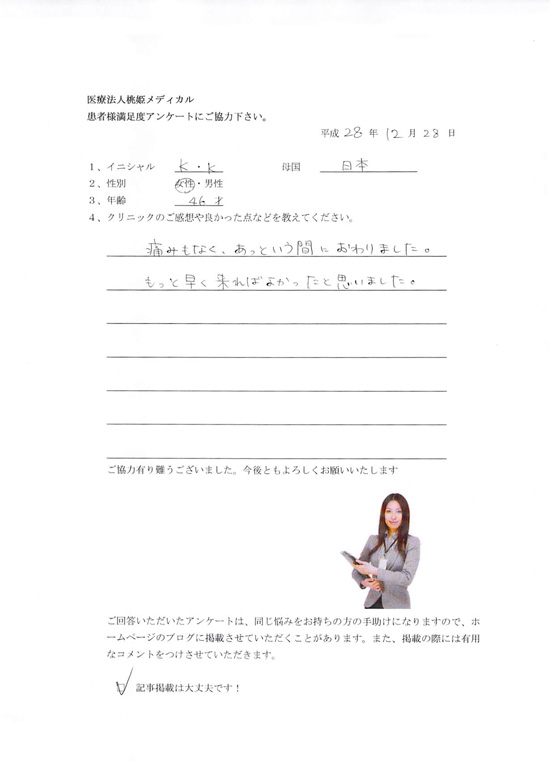 医療法人桃姫メディカル
患者様満足度アンケートにご協力下さい。
平成 28 年 12 月 28 日
1、イニシャル K・K 母国 日本
2、性別 女性・男性
3、年齢 46 才
4、クリニックのご感想や良かった点などを教えてください。
痛みもなく、あっという間におわりました。
もっと早く来ればよかったと思いました。
ご協力有り難うございました。今後ともよろしくお願いいたします
ご回答いただいたアンケートは、同じ悩みをお持ちの方の手助けになりますので、ホ
ームページのブログに掲載させていただくことがあります。また、掲載の際には有用
なコメントをつけさせていただきます。
記事掲載は大丈夫です！